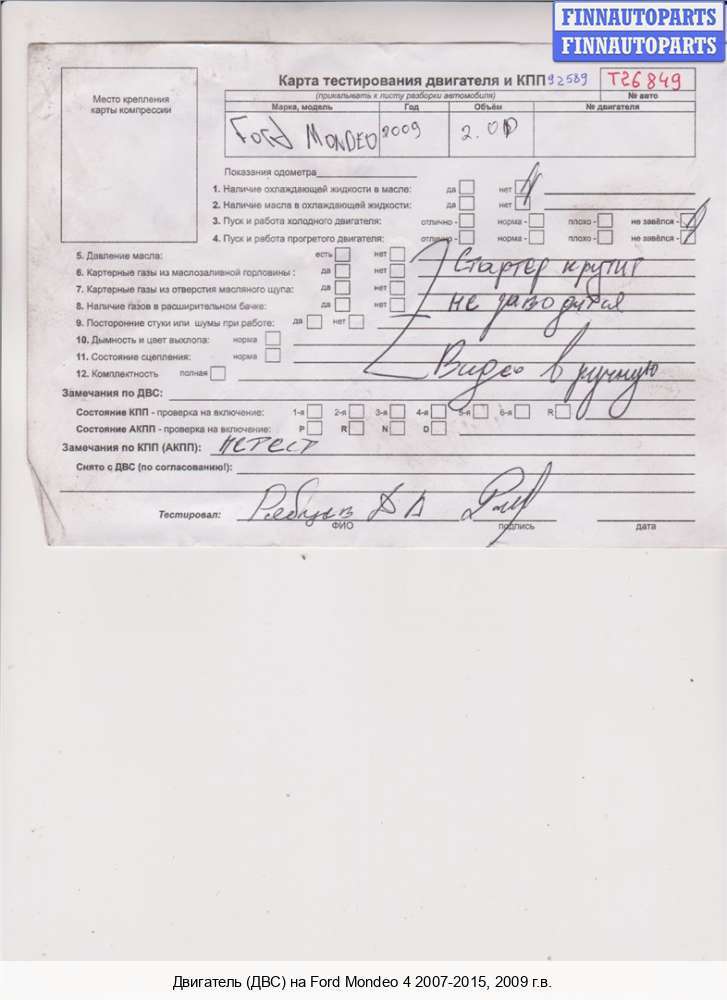 FINNAUTOPARTS
FINNAUTOPARTS
Место крепления
карты компрессии
Карта тестирования двигателя и КПП 92589 T26849
(прикалывать к листу разборки автомобиля) № авто
Марка, модель Год Объём № двигателя
Ford MONDEO 2009 2.0D
Показания одометра
1. Наличие охлаждающей жидкости в масле: да нет
2. Наличие масла в охлаждающей жидкости: да нет
3. Пуск и работа холодного двигателя: отлично - норма - плохо - не завёлся -
4. Пуск и работа прогретого двигателя: отлично - норма - плохо - не завёлся -
5. Давление масла: есть нет
6. Картерные газы из маслозаливной горловины : да нет
Стартер крутит
7. Картерные газы из отверстия масляного щупа: да нет
8. Наличие газов в расширительном бачке: да нет
не заводится
9. Посторонние стуки или шумы при работе: да нет
10. Дымность и цвет выхлопа: норма
11. Состояние сцепления: норма
12. Комплектность полная
Видео вручную
Замечания по ДВС:
Состояние КПП - проверка на включение: 1-я 2-я 3-я 4-я 5-я 6-я R
Состояние АКПП - проверка на включение: P R N D
Замечания по КПП (АКПП): не тест
Снято с ДВС (по согласованию!):
Тестировал:
ФИО подпись дата
Двигатель (ДВС) на Ford Mondeo 4 2007-2015, 2009 г.в.